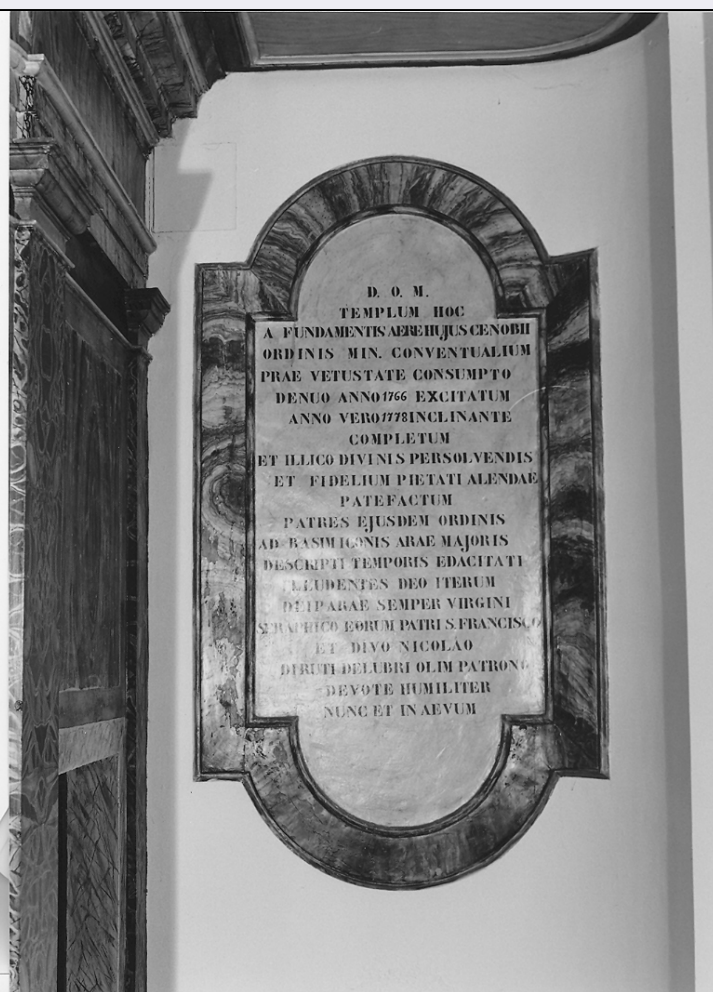 D. O. M.
TEMPLUM HOC
A FUNDAMENTIS AERE HUJUS CENOBII
ORDINIS MIN. CONVENTUALIUM
PRAE VETUSTATE CONSUMPTO
DENUO ANNO 1766 EXCITATUM
ANNO VERO 1778 INCLINANTE
COMPLETUM
ET ILLICO DIVINIS PERSOLVENDIS
ET FIDELIUM PIETATI ALENDAE
PATEFACTUM
PATRES EJUSDEM ORDINIS
AD BASIM ICONIS ARAE MAJORIS
DESCRIPTI TEMPORIS EDACITATI
ILLUDENTES DEO ITERUM
DEIPARAE SEMPER VIRGINI
SERAPHICO EORUM PATRI S. FRANCISCO
ET DIVO NICOLAO
DIRUTI DELUBRI OLIM PATRONO
DEVOTE HUMILITER
NUNC ET IN AEVUM